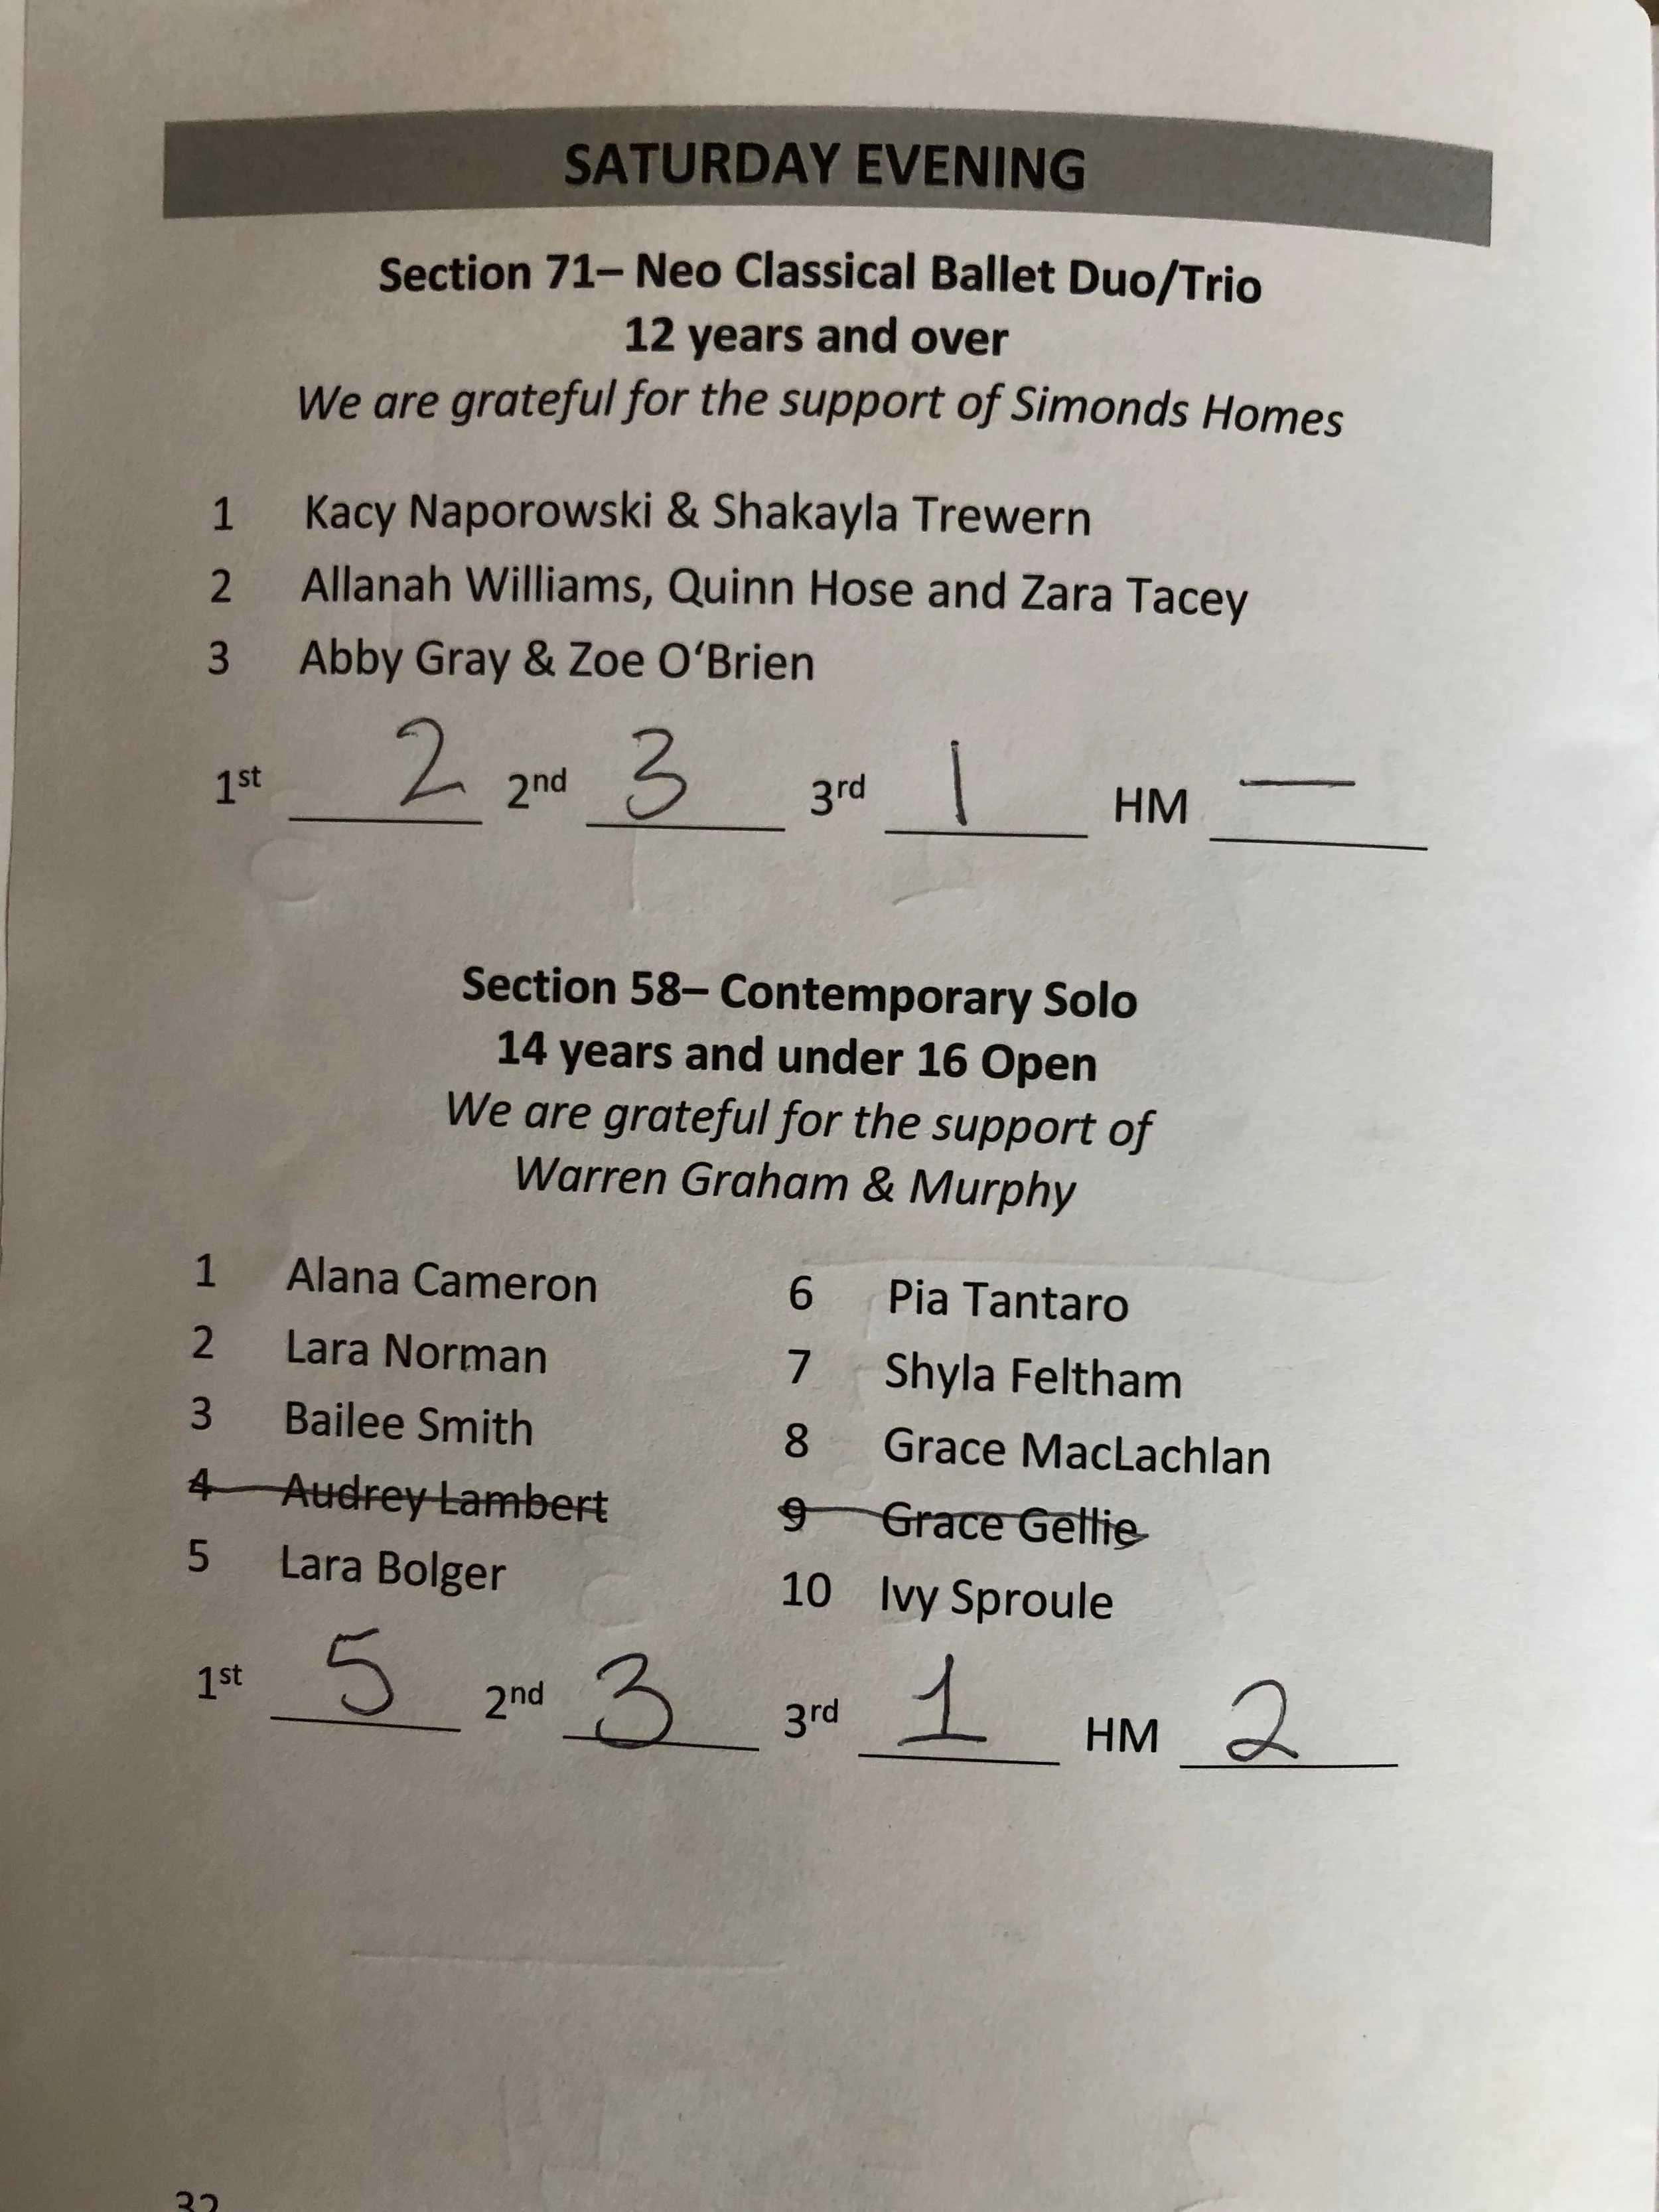 SATURDAY EVENING
Section 71– Neo Classical Ballet Duo/Trio
12 years and over
We are grateful for the support of Simonds Homes
1 Kacy Naporowski & Shakayla Trewern
2 Allanah Williams, Quinn Hose and Zara Tacey
3 Abby Gray & Zoe O‘Brien
1st 2 2nd 3 3rd 1 HM —
Section 58– Contemporary Solo
14 years and under 16 Open
We are grateful for the support of
Warren Graham & Murphy
1 Alana Cameron
2 Lara Norman
3 Bailee Smith
4 Audrey Lambert
5 Lara Bolger
6 Pia Tantaro
7 Shyla Feltham
8 Grace MacLachlan
9 Grace Gellie
10 Ivy Sproule
1st 5 2nd 3 3rd 1 HM 2
32